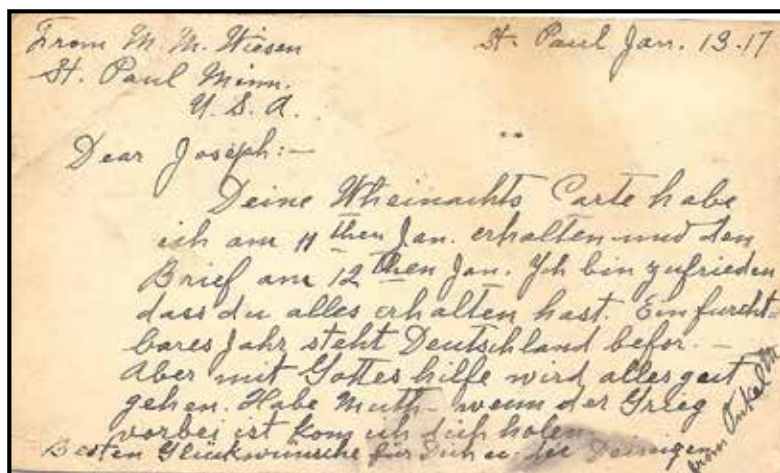 From M. M. Wiesen
St. Paul Jan. 13.17
St. Paul Minn.
U. S. A.
Dear Joseph:—
Deine Wheinachts Carte habe
ich am 11 then Jan. erhalten und den
Brief am 12 then Jan. Ich bin zufrieden
dass du alles erhalten hast. Ein furcht-
bares Jahr steht Deutschland befor. —
Aber mit Gottes hilfe wird alles gut
gehen. Habe Muth - wenn der Grieg
vorbei ist kom ich dich holen
Besten Glückwünsche für Dich u. die Deinigen
from Onkel M.